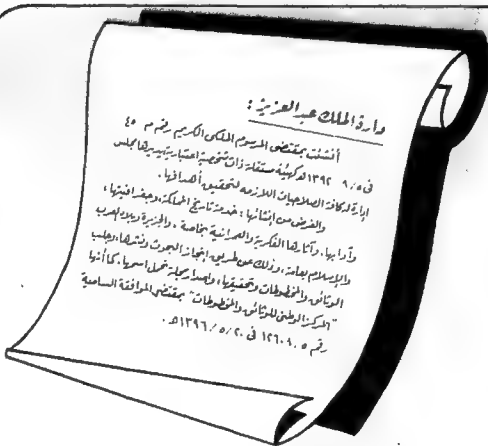 دارة الملك عبد العزيز :
أنشئت بمقتضى المرسوم الملكي الكريم رقم م ٤٥
في ٨/٥ ١٣٩٢هـ كهيئة مستقلة ذات شخصية اعتبارية يديرها مجلس
إدارة له كافة الصلاحيات اللازمة لتحقيق أهدافها .
والغرض من إنشائها : خدمة تاريخ المملكة وجغرافيتها ،
وآدابها ، وآثارها الفكرية والعمرانية بخاصة ، والجزيرة وبلاد العرب
والإسلام بعامة ، وذلك عن طريق إنجاز البحوث ونشرها ، وجلب
الوثائق والمخطوطات وتحقيقها ، وإصدار مجلة تحمل اسمها ، كما أنها
"المركز الوطني للوثائق والمخطوطات" بمقتضى الموافقة السامية
رقم ٥/١٢٦٠٨ في ١٣٩٦/٥/٢٠هـ .